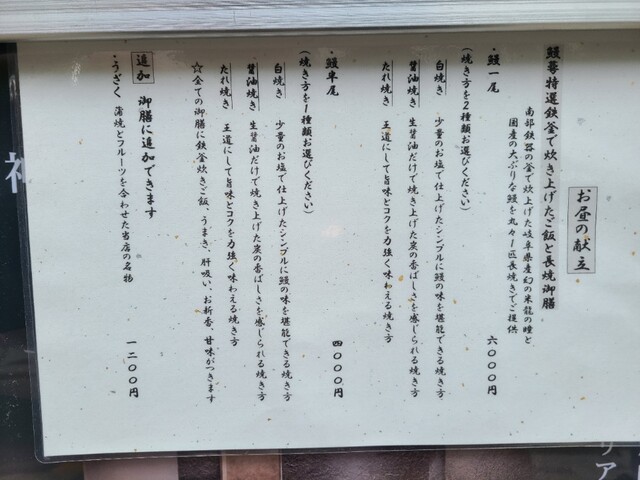 お昼の献立
鰻專特選鉄釜で炊き上げたご飯と長焼御膳
南部鉄器の釜で炊上げた岐阜県産幻の米龍の瞳と
国産の大ぶりな鰻を丸々一匹長焼きでご提供
・鰻一尾 六〇〇〇円
(焼き方を2種類お選びください)
白焼き 少量のお塩で仕上げたシンプルに鰻の味を堪能できる焼き方
醤油焼き 生醤油だけで焼き上げた炭の香ばしさを感じられる焼き方
たれ焼き 王道にして旨味とコクを力強く味わえる焼き方
・鰻半尾 四〇〇〇円
(焼き方を1種類お選びください)
白焼き 少量のお塩で仕上げたシンプルに鰻の味を堪能できる焼き方
醤油焼き 生醤油だけで焼き上げた炭の香ばしさを感じられる焼き方
たれ焼き 王道にして旨味とコクを力強く味わえる焼き方
☆全ての御膳に鉄釜炊きご飯、うまき、肝吸い、お新香、甘味がつきます
追加 御膳に追加できます
・うざく 蒲焼とフルーツを合わせた当店の名物 一二〇〇円